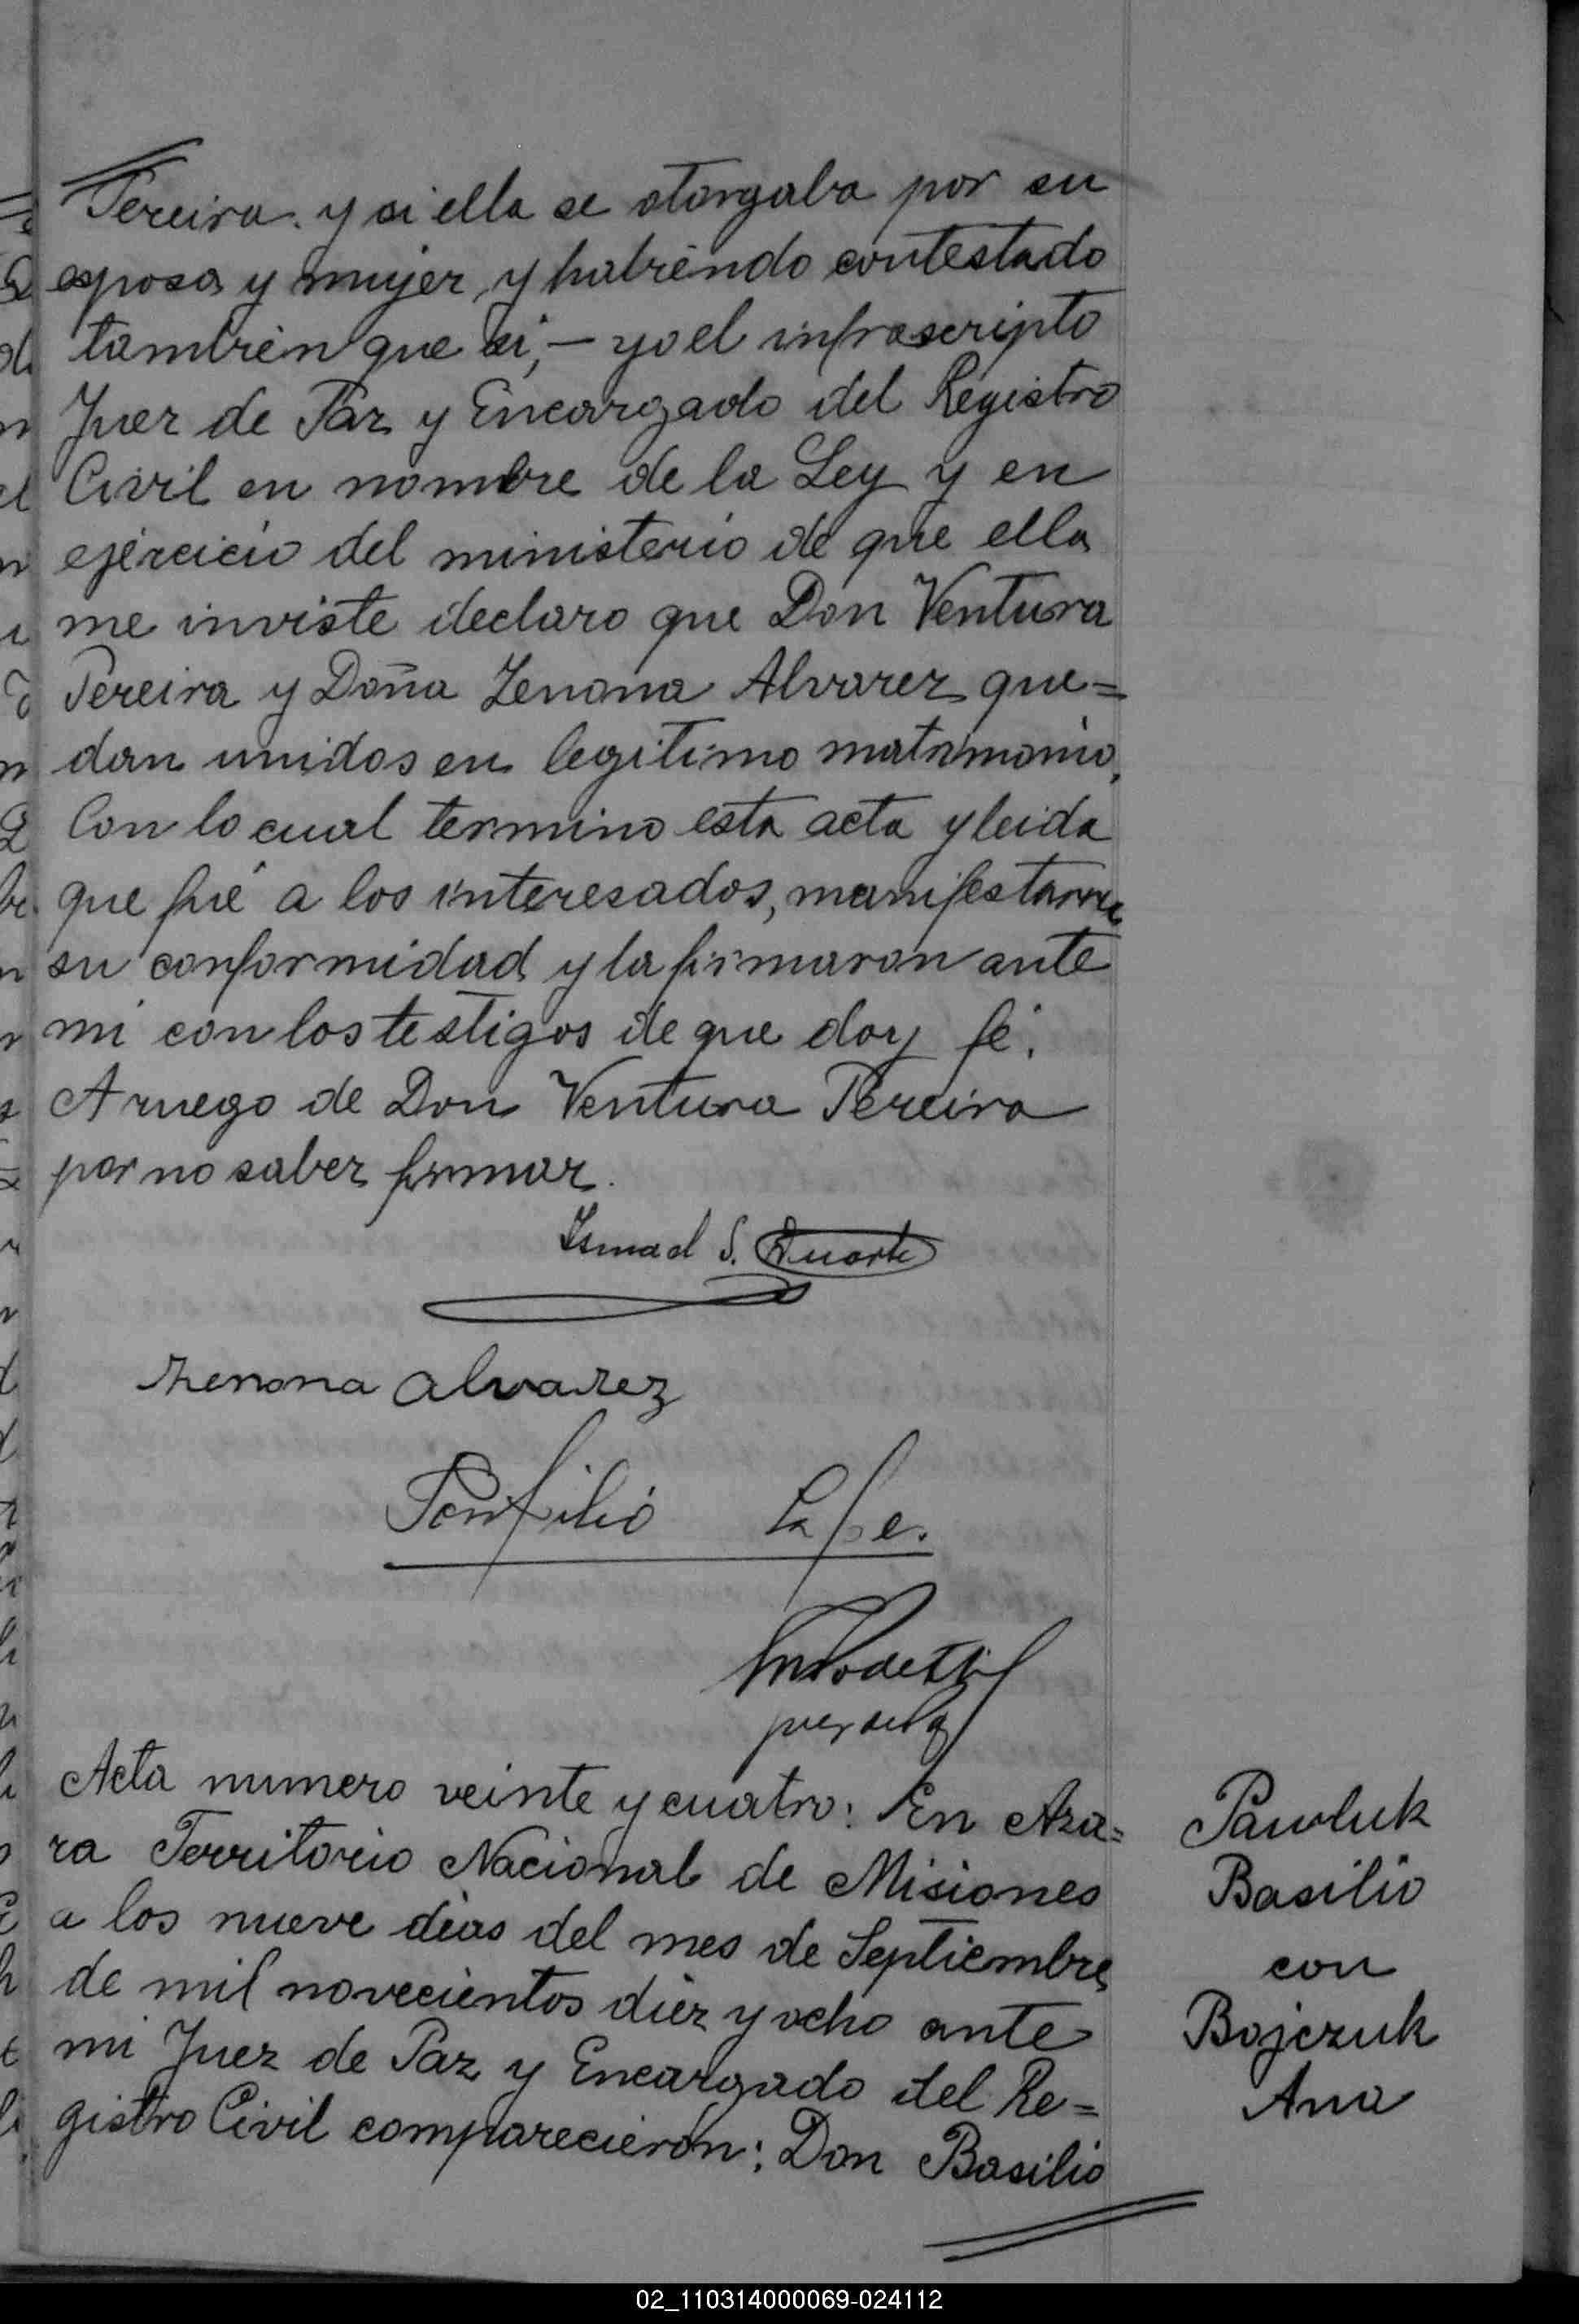 Pereira. y si ella se otorgaba por su
esposa y mujer, y habiendo contestado
tambien que si,— yo el infrascripto
Juez de Paz y Encargado del Registro
Civil en nombre de la Ley y en
ejercicio del ministerio de que ella
me inviste declaro que Don Ventura
Pereira y Doña Zenona Alvarez que=
dan unidos en legitimo matrimonio.
Con lo cual termino esta acta y leida
que fué a los interesados, manifestaron
su conformidad y la firmaron ante
mi con los testigos de que doy fé.
A ruego de Don Ventura Pereira
por no saber firmar.
Ismael S. Duarte
Zenona Alvarez
Lafe.
juez de Paz
Acta numero veinte y cuatro: En Aza=
ra Territorio Nacional de Misiones
a los nueve dias del mes de Septiembre
de mil novecientos diez y ocho ante
mi Juez de Paz y Encargado del Re=
gistro Civil comparecieron: Don Basilio
Pawluk
Basilio
con
Bojczuk
Ana
02_110314000069-024112